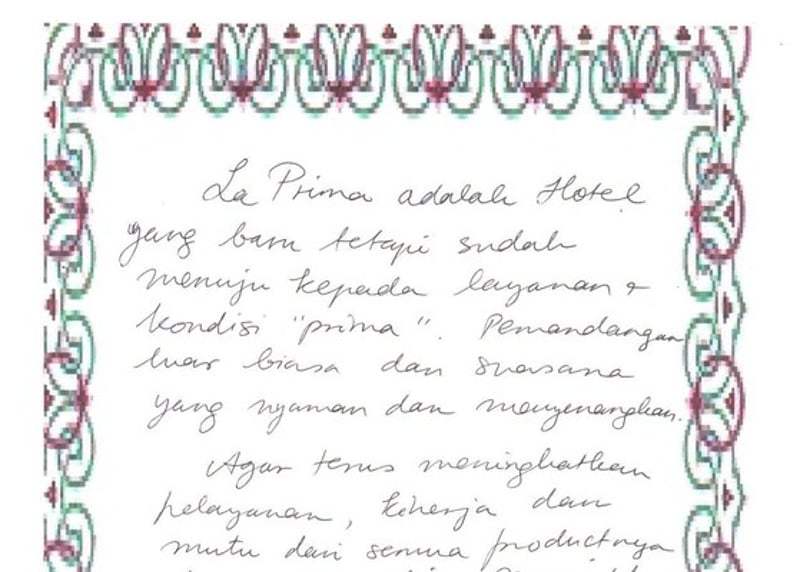 La Prima adalah Hotel
yang baru tetapi sudah
menuju kepada layanan +
kondisi "prima". Pemandangan
luar biasa dan suasana
yang nyaman dan menyenangkan.
Agar terus meningkatkan
pelayanan, kinerja dan
mutu dari semua productnya